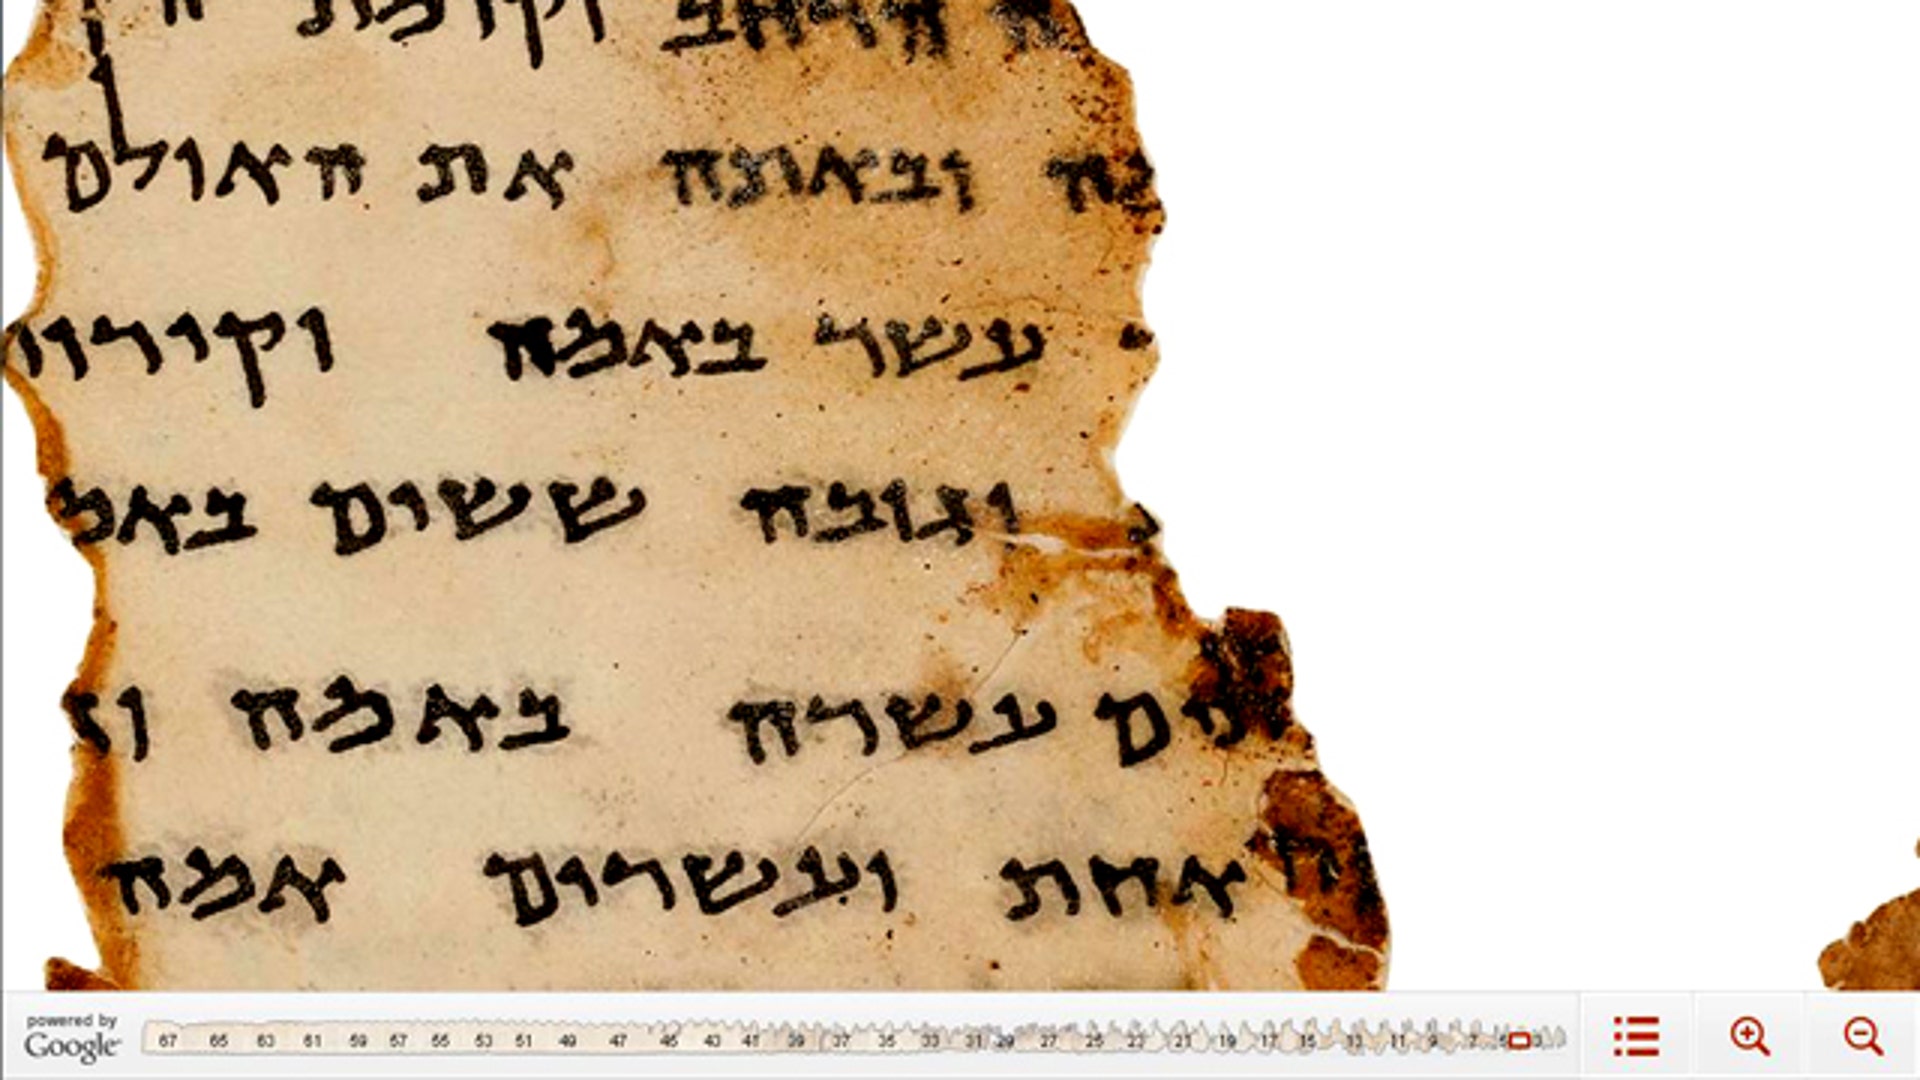 וקומת
ובאתה את האולם
עשר באמה וקירות
וגובה ששים באמ
ים עשרה באמה
אחת ועשרים אמה
powered by
Google
67 65 63 61 59 57 55 53 51 49 47 45 43 41 39 37 35 33 31 29 27 25 23 21 19 17 15 13 11 9 7 5 3